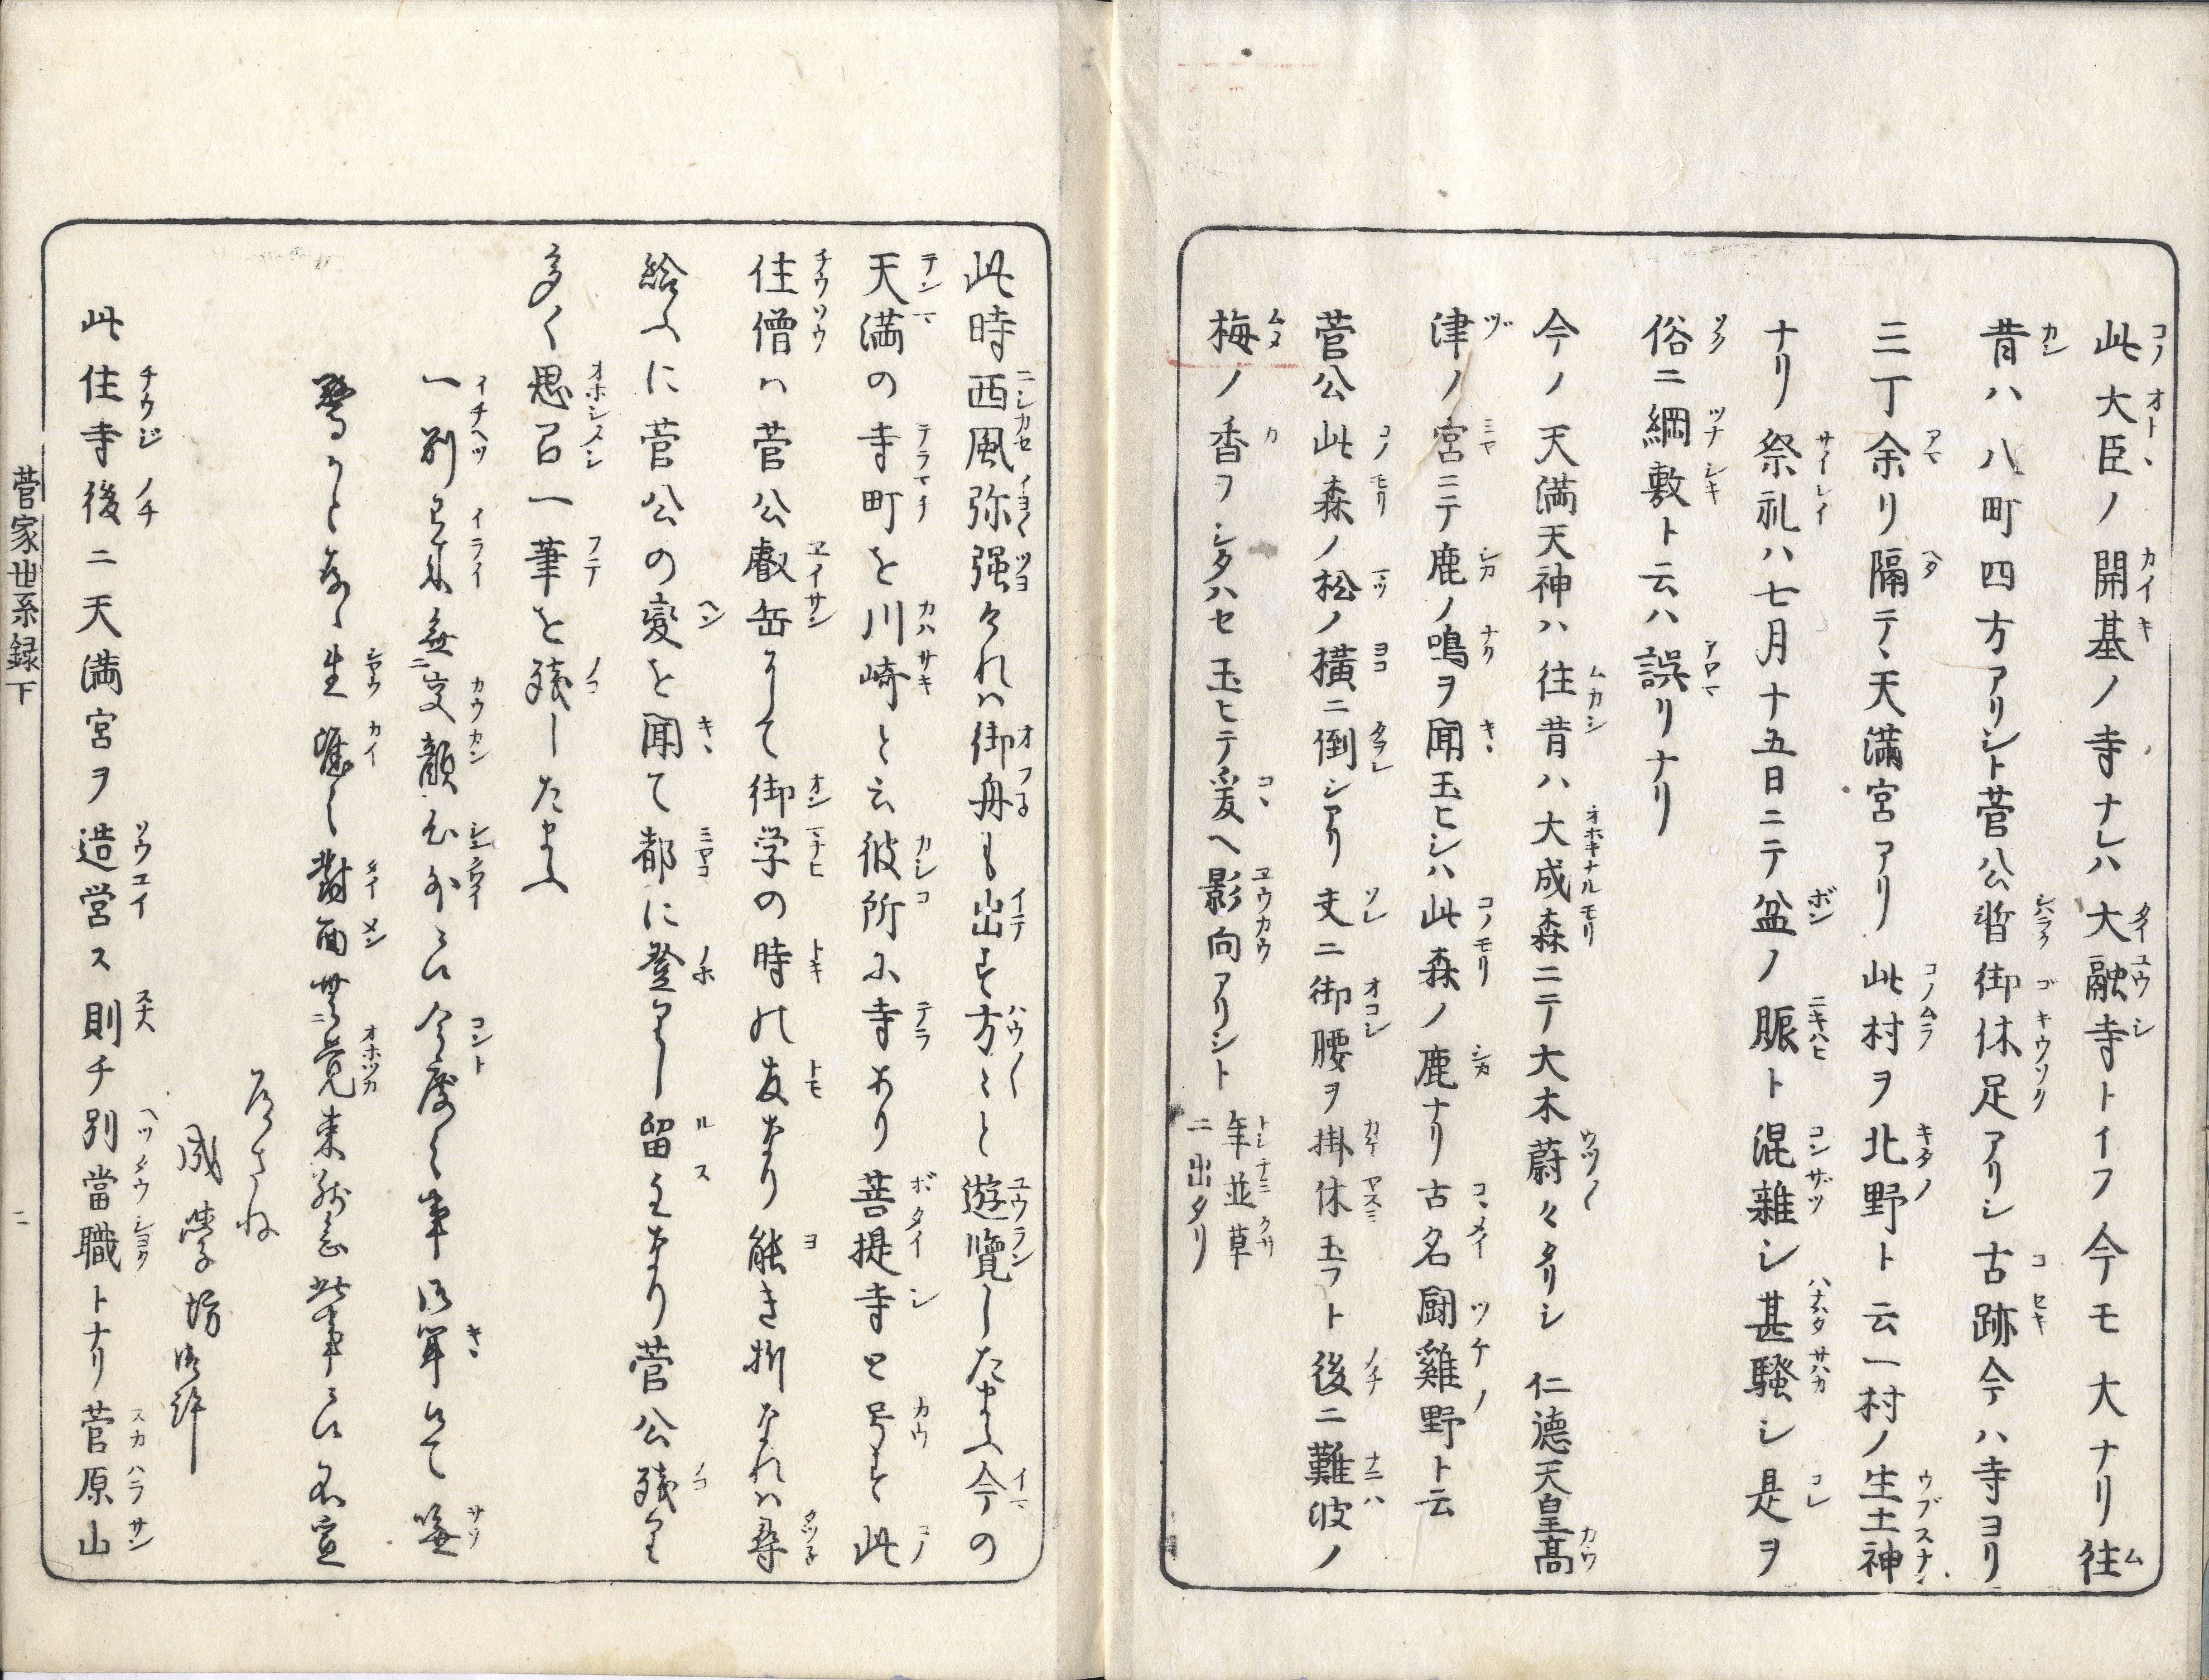 此大臣ノ開基ノ寺ナレハ大融寺トイフ今モ大ナリ往
昔ハ八町四方アリシト菅公暫御休足アリシ古跡今ハ寺ヨリ
三丁余リ隔テヽ天満宮アリ此村ヲ北野ト云一村ノ生土神
ナリ祭礼ハ七月十五日ニテ盆ノ賑ト混雑シ甚騒シ是ヲ
俗ニ綱敷ト云ハ誤リナリ
今ノ天満天神ハ往昔ハ大成森ニテ大木蔚々タリシ仁徳天皇高
津ノ宮ニテ鹿ノ鳴ヲ聞玉ヒシハ此森ノ鹿ナリ古名闘雞野ト云
菅公此森ノ松ノ横ニ倒シアリ夫ニ御腰ヲ掛休玉フト後ニ難波ノ
梅ノ香ヲシタハセ玉ヒテ爰ヘ影向アリシト年並草
ニ出タリ
此時西風弥強けれハ御舟も出す方〻と遊覧したまふ今の
天満の寺町を川崎と云彼所に寺あり菩提寺と号す此
住僧ハ菅公叡岳にて御学の時の友なり能き折なれハ尋
給ふに菅公の変を聞て都に登りし留主なり菅公残り
多く思召一筆を残したまふ
一別已来無交顔
生涯之對面無覚束
此住寺後ニ天満宮ヲ造営ス則チ別當職トナリ菅原山
菅家世系録下
二